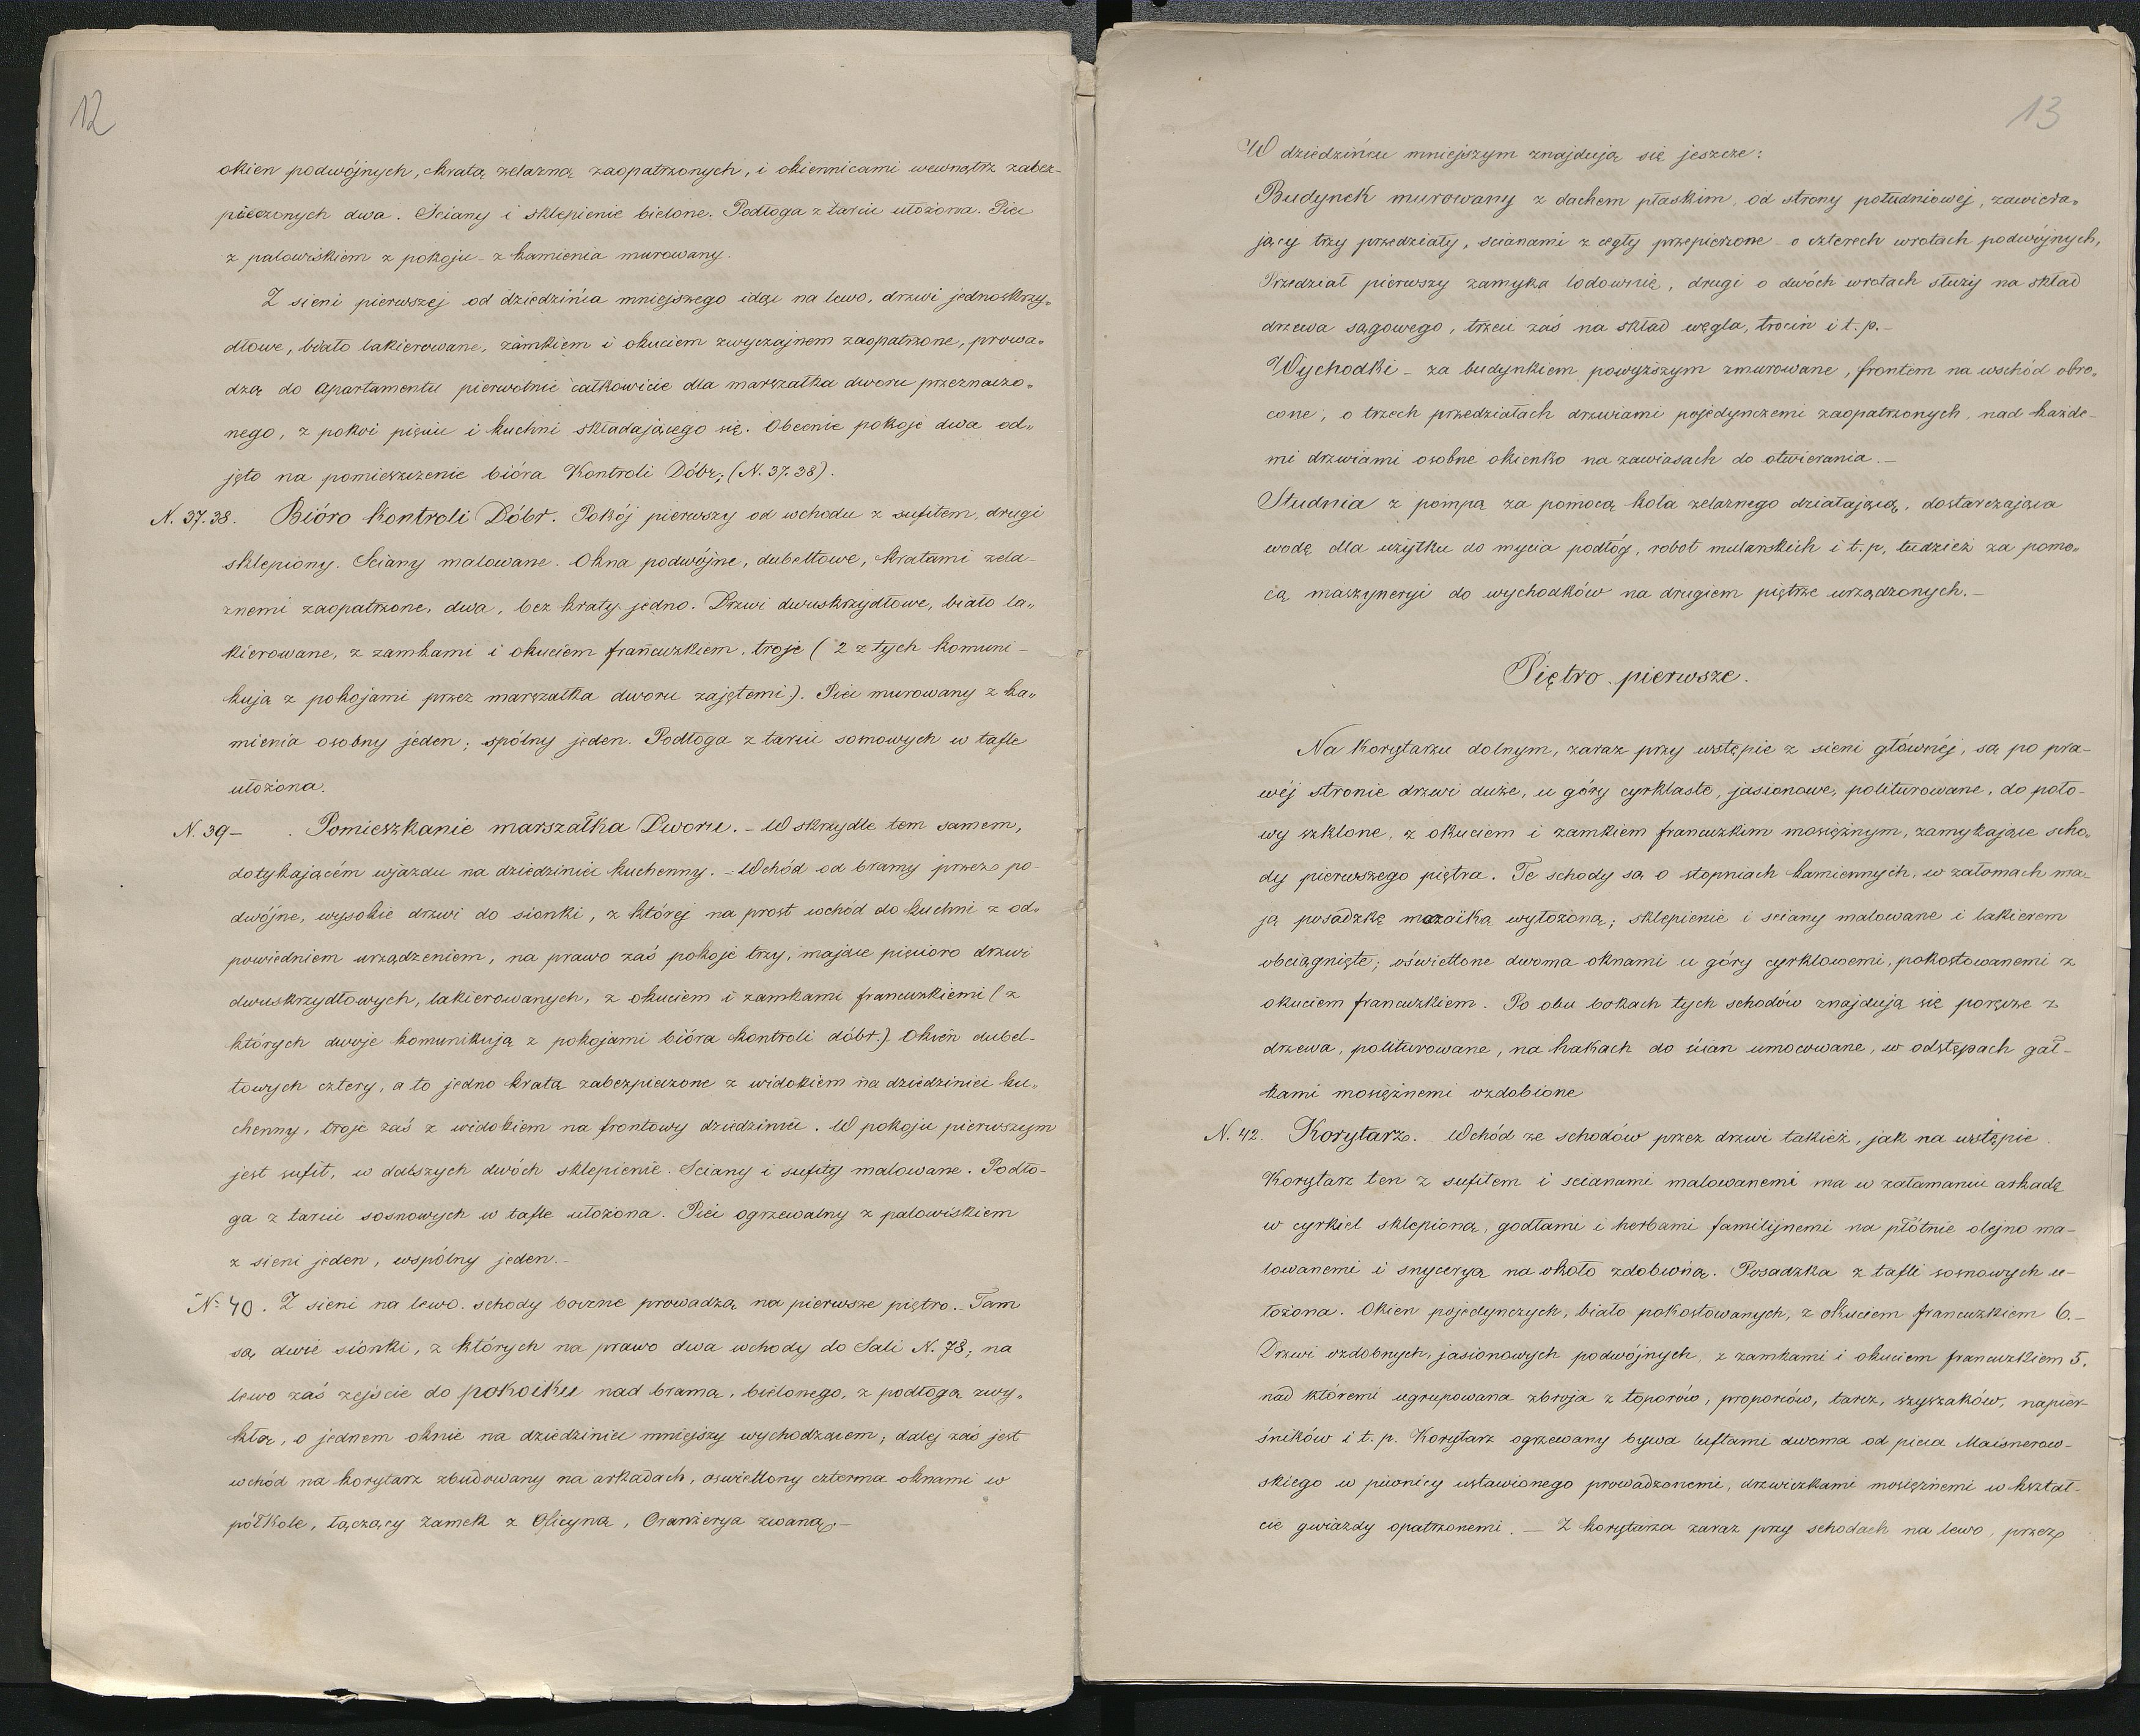 12
okien podwójnych, kratą żelazną zaopatrzonych, i okiennicami wewnątrz zabez-
pieczonych dwa. Sciany i sklepienie bielone. Podłoga z tarcic ułożona. Piec
z palowiskiem z pokoju - z kamienia murowany.
Z sieni pierwszej od dziedzińca mniejszego idąc na lewo, drzwi jednoskrzy„
dłowe, biało lakierowane, zamkiem i okuciem zwyczajnem zaopatrzone, prowa„
dzą do Apartamentu pierwotnie całkowicie dla marszałka dworu przeznaczo„
nego, z pokoi pięciu i kuchni składającego się. Obecnie pokoje dwa od„
jęto na pomieszczenie bióra Kontroli Dóbr; (N. 37. 38).
N. 37. 38. Bióro Kontroli Dóbr. Pokój pierwszy od wchodu z sufitem, drugi
sklepiony. Sciany malowane. Okna podwójne, dubeltowe, kratami żela-
znemi zaopatrzone, dwa, bez kraty jedno. Drzwi dwuskrzydłowe, biało la„
kierowane, z zamkami i okuciem francuzkiem, troje (2 z tych komuni-
kują z pokojami przez marszałka dworu zajętemi). Piec murowany z ka„
mienia osobny jeden; spólny jeden. Podłoga z tarcic sosnowych w tafle
ułożona.
N. 39 - . Pomieszkanie marszałka Dworu. - W skrzydle tem samem,
dotykającém wjazdu na dziedziniec kuchenny. - Wchód od bramy przez po-
dwójne, wysokie drzwi do sionki, z której na prost wchód do kuchni z od„
powiedniem urządzeniem, na prawo zaś pokoje trzy, mające pięcioro drzwi
dwuskrzydłowych, lakierowanych, z okuciem i zamkami francuzkiemi (z
których dwoje komunikują z pokojami bióra kontroli dóbr.) Okien dubel-
towych cztery, a to jedno kratą zabezpieczone z widokiem na dziedziniec ku„
chenny, troje zaś z widokiem na frontowy dziedziniec. W pokoju pierwszym
jest sufit, w dalszych dwóch sklepienie. Sciany i sufity malowane. Podło-
ga z tarcic sosnowych w tafle ułożona. Piec ogrzewalny z palowiskiem
z sieni jeden, wspólny jeden. -
No 40. Z sieni na lewo schody boczne prowadzą na pierwsze piętro. Tam
są dwie sionki, z których na prawo dwa wchody do Sali N. 78; na
lewo zaś zejście do pokoiku nad bramą, bielonego, z podłogą zwy„
kłą, o jednem oknie na dziedziniec mniejszy wychodzącem; dalej zaś jest
wchód na korytarz zbudowany na arkadach, oswietlony czterma oknami w
półkole, łączący zamek z Oficyną, Oranżeryą zwaną. -
13
W dziedzińcu mniejszym znajdują się jeszcze:
Budynek murowany z dachem płaskim, od strony południowej, zawiera„
jący trzy przedziały, scianami z cegły przepierzone - o czterech wrotach podwójnych,
Przedział pierwszy zamyka lodownię, drugi o dwóch wrotach służy na skład
drzewa sągowego, trzeci zaś na skład węgla, trocin i t. p. -
Wychodki - za budynkiem powyższym zmurowane, frontem na wschód obro„
cone, o trzech przedziałach drzwiami pojedynczemi zaopatrzonych, nad każde-
mi drzwiami osobne okienko na zawiasach do otwierania. -
Studnia z pompą za pomocą koła żelaznego działającą, dostarczająca
wodę dla użytku do mycia podłóg, robot mularskich i t. p, tudzież za pomo„
cą maszyneryi do wychodków na drugiem piętrze urządzonych. -
Piętro pierwsze.
Na Korytarzu dolnym, zaraz przy wstępie z sieni głównéj, są po pra-
wéj stronie drzwi duże, u góry cyrklaste, jasionowe, politurowane, do poło-
wy szklone, z okuciem i zamkiem francuzkim mosiężnym, zamykające scho„
dy pierwszego piętra. Te schody są o stopniach kamiennych, w załomach ma-
ją posadzkę mozaiką wyłożoną; sklepienie i sciany malowane i lakierem
obciągnięte; oświetlone dwoma oknami u góry cyrklowemi, pokostowanemi z
okuciem francuzkiem. Po obu bokach tych schodów znajdują się poręcze z
drzewa, politurowane, na hakach do ścian umocowane, w odstępach gał-
kami mosiężnemi ozdobione
N. 42. Korytarz. Wchód ze schodów przez drzwi takież, jak na wstępie.
Korytarz ten z sufitem i scianami malowanemi ma w załamaniu arkadę
w cyrkiel sklepioną, godłami i herbami familijnemi na płótnie olejno ma-
lowanemi i snyceryą na około zdobioną. Posadzka z tafli sosnowych u-
łożona. Okien pojedynczych, biało pokostowanych, z okuciem francuzkiem 6. -
Drzwi ozdobnych, jasionowych podwójnych, z zamkami i okuciem francuzkiem 5.
nad któremi ugrupowana zbroja z toporów, proporców, tarcz, szyszaków, napier-
śników i t. p. Korytarz ogrzewany bywa luftami dwoma od pieca Maisnerow-
skiego w piwnicy ustawionego prowadzonemi, drzwiczkami mosiężnemi w kształ-
cie gwiazdy opatrzonemi. - Z korytarza zaraz przy schodach na lewo, przez